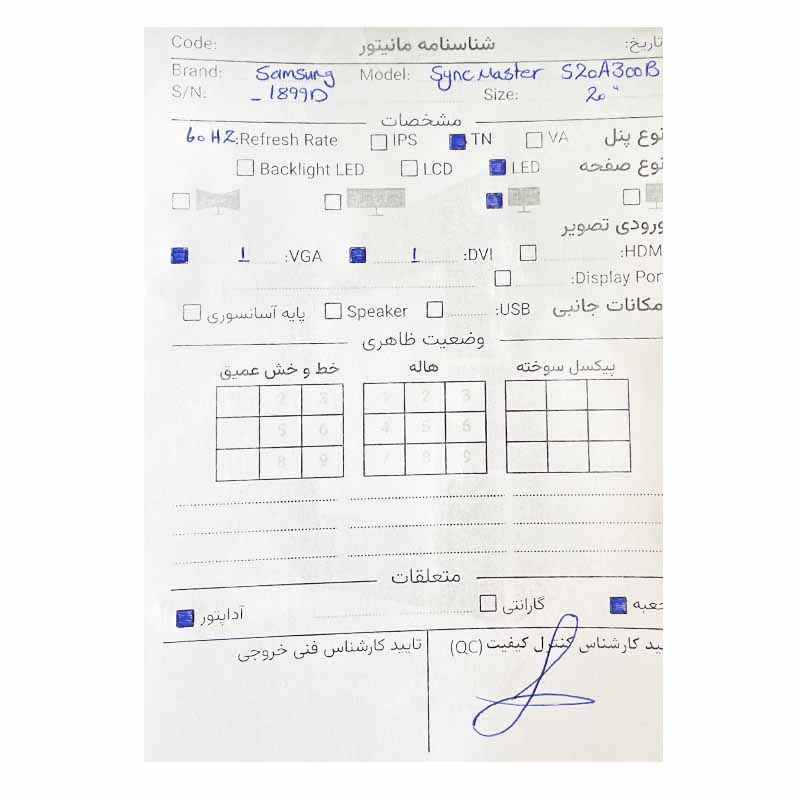 تاریخ: شناسنامه مانیتور Code:
Brand: Samsung Model: SyncMaster S20A300B
S/N: _1899D Size: 20"
مشخصات
نوع پنل VA TN IPS Refresh Rate: 60HZ
نوع صفحه LED LCD Backlight LED
ورودی تصویر
HDM: DVI: 1 VGA: 1
Display Por:
مکانات جانبی USB: Speaker پایه آسانسوری
وضعیت ظاهری
پیکسل سوخته هاله خط و خش عمیق
1 2 3 2 3
4 5 6 5 6
7 8 9 8 9
متعلقات
جعبه گارانتی آداپتور
ید کارشناس کنترل کیفیت (QC) تایید کارشناس فنی خروجی